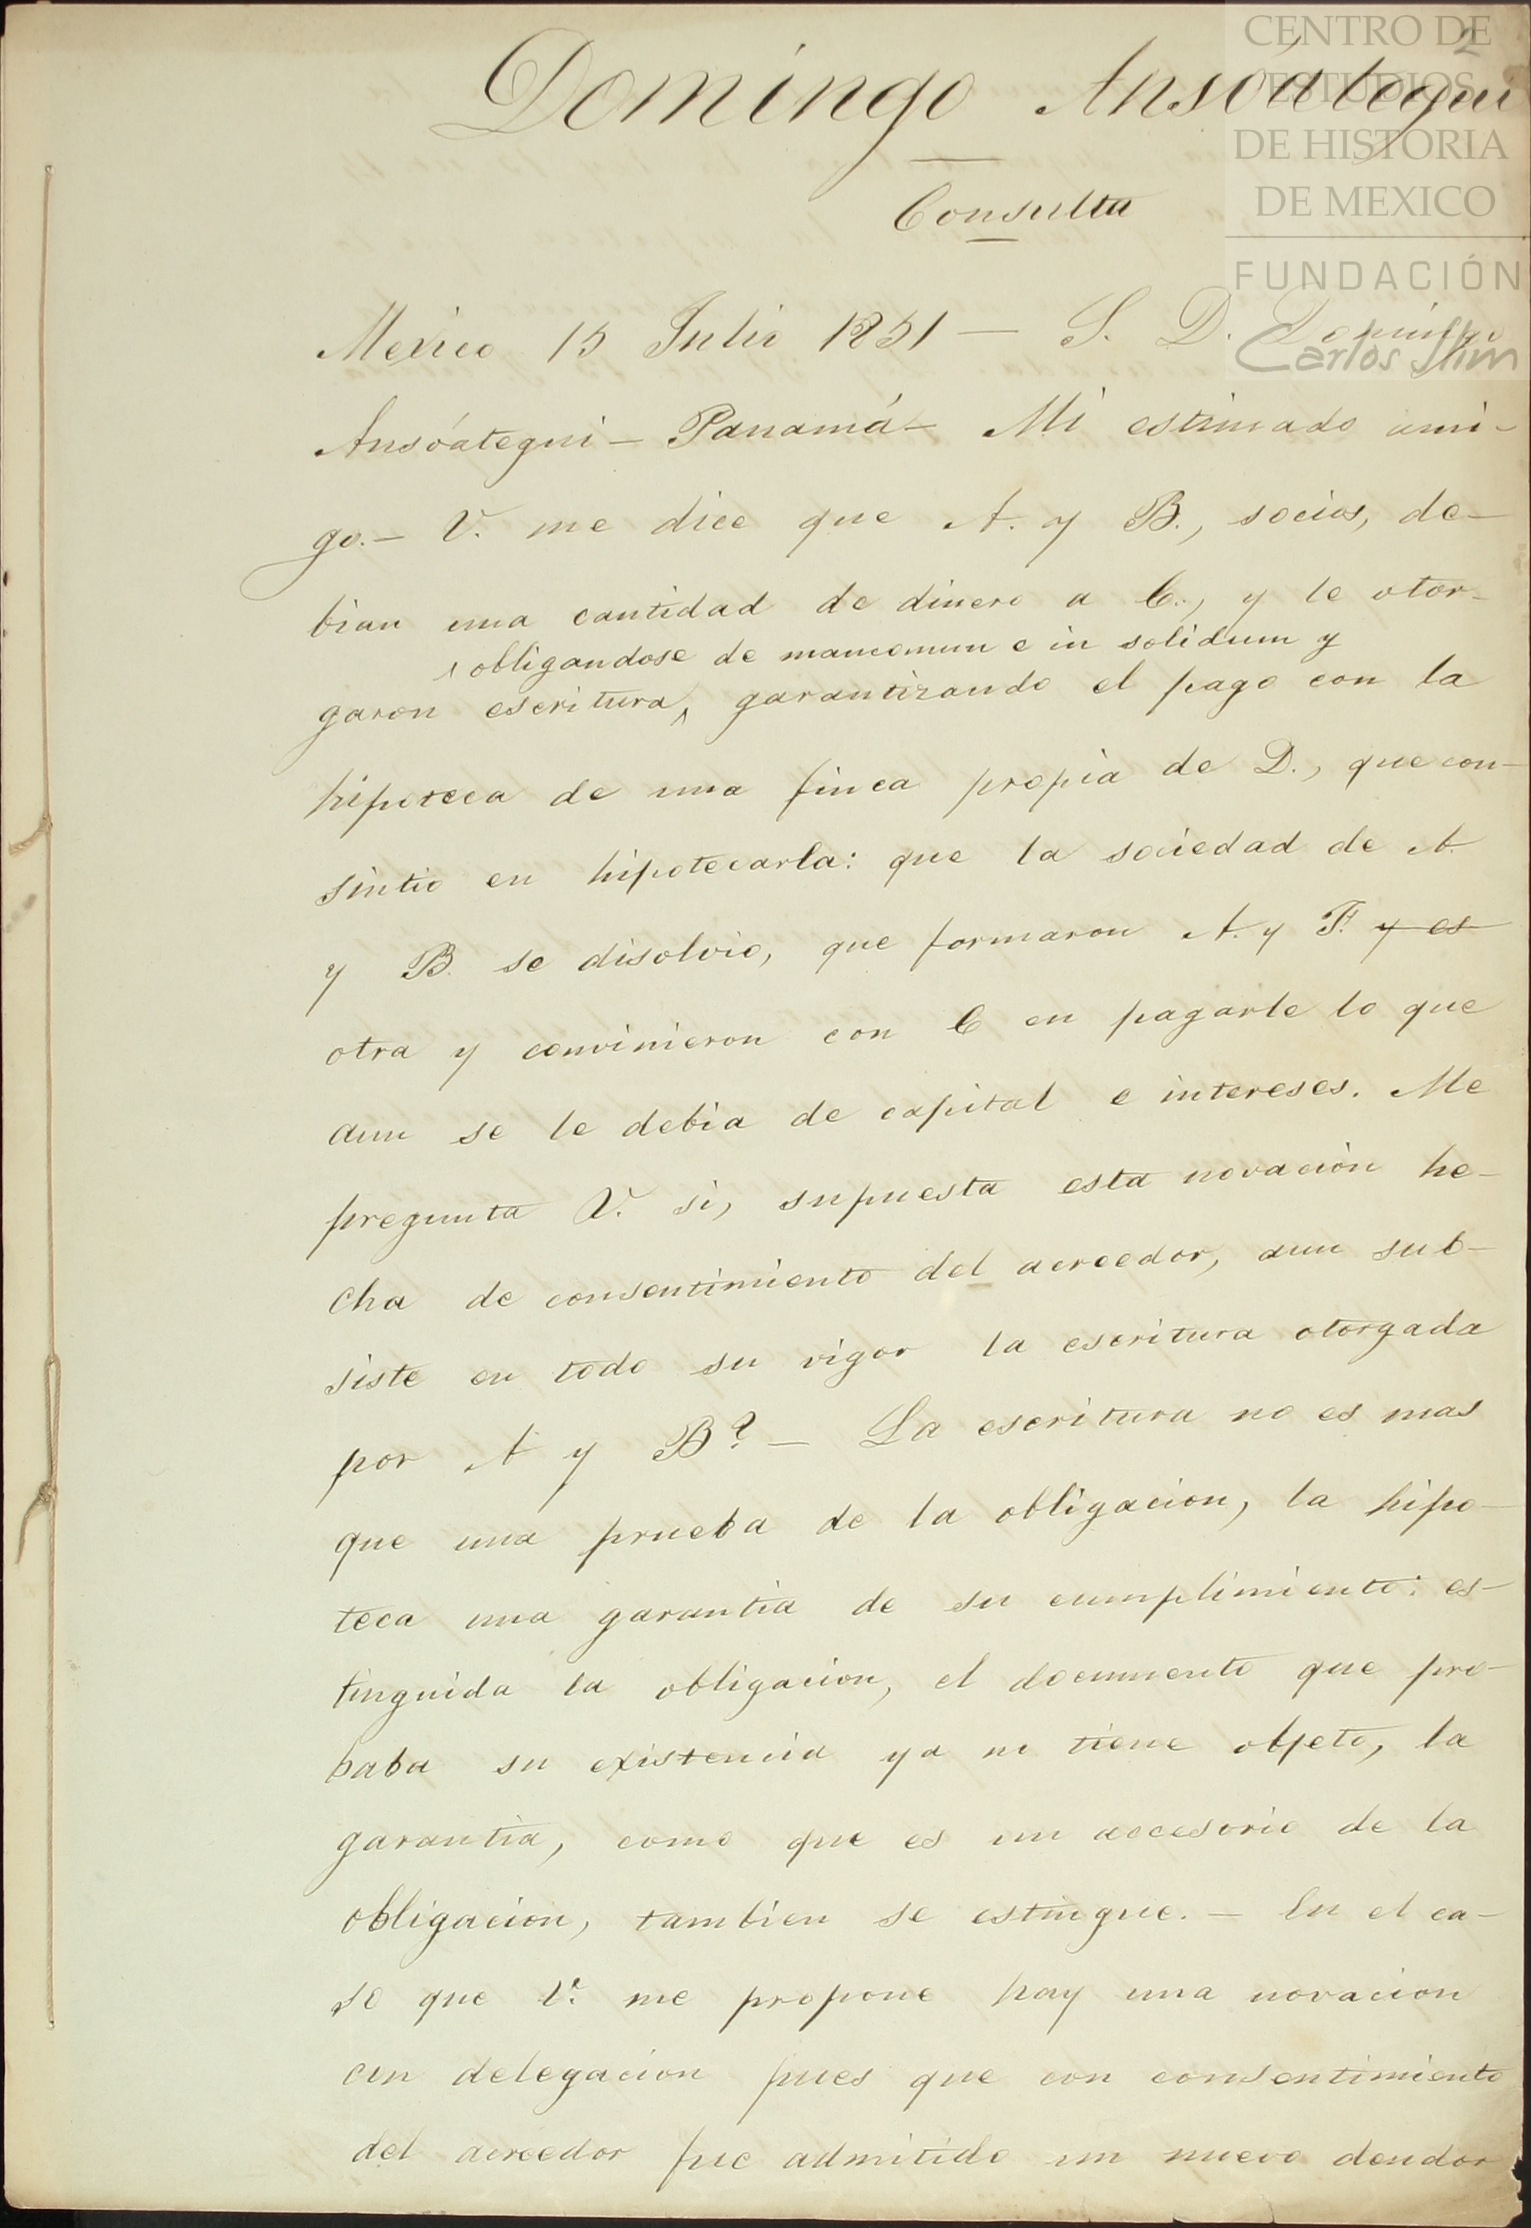 2
Domingo Ansóategui
Consulta
Mexico 15 Julio 1851 — S. D. Domingo
Ansóategui — Panamá — Mi estimado ami-
go. — V. me dice que A. y B., socios, de-
bian una cantidad de dinero a C., y le otor-
obligandose de mancomun e in solidum y
garon escritura, garantizando el pago con la
hipoteca de una finca propia de D., que con-
sintio en hipotecarla: que la sociedad de A.
y B. se disolvio, que formaron A. y F. y es
otra y convinieron con C en pagarle lo que
aun se le debia de capital e intereses. Me
pregunta V. si, supuesta esta novación he-
cha de consentimiento del acreedor, aun sub-
siste en todo su vigor la escritura otorgada
por A y B? — La escritura no es mas
que una prueba de la obligacion, la hipo-
teca una garantia de su cumplimiento: es-
tinguida la obligacion, el documento que pro-
baba su existencia ya no tiene objeto, la
garantia, como que es un accesorio de la
obligacion, tambien se estingue. — En el ca-
so que V. me propone hay una novacion
con delegacion pues que con consentimiento
del acreedor fue admitido un nuevo deudor
CENTRO DE
ESTUDIOS
DE HISTORIA
DE MEXICO
FUNDACIÓN
Carlos Slim